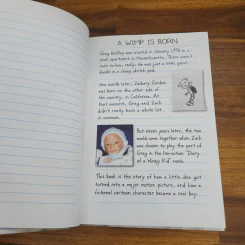 A WIMP IS BORN
Greg Heffley was created in January 1998 in a
small apartment in Massachusetts. There wasn't
much to him, really. He was just a little, pencil
doodle in a cheap sketch pad.
One month later, Zachary Gordon
was born on the other side of
the country, in California. At
that moment, Greg and Zach
didn't really have a whole lot
in common.
But eleven years later, the two
would come together when Zach
was chosen to play the part of
Greg in the live-action "Diary
of a Wimpy Kid" movie.
This book is the story of how a little idea got
turned into a major motion picture, and how a
fictional cartoon character became a real boy.